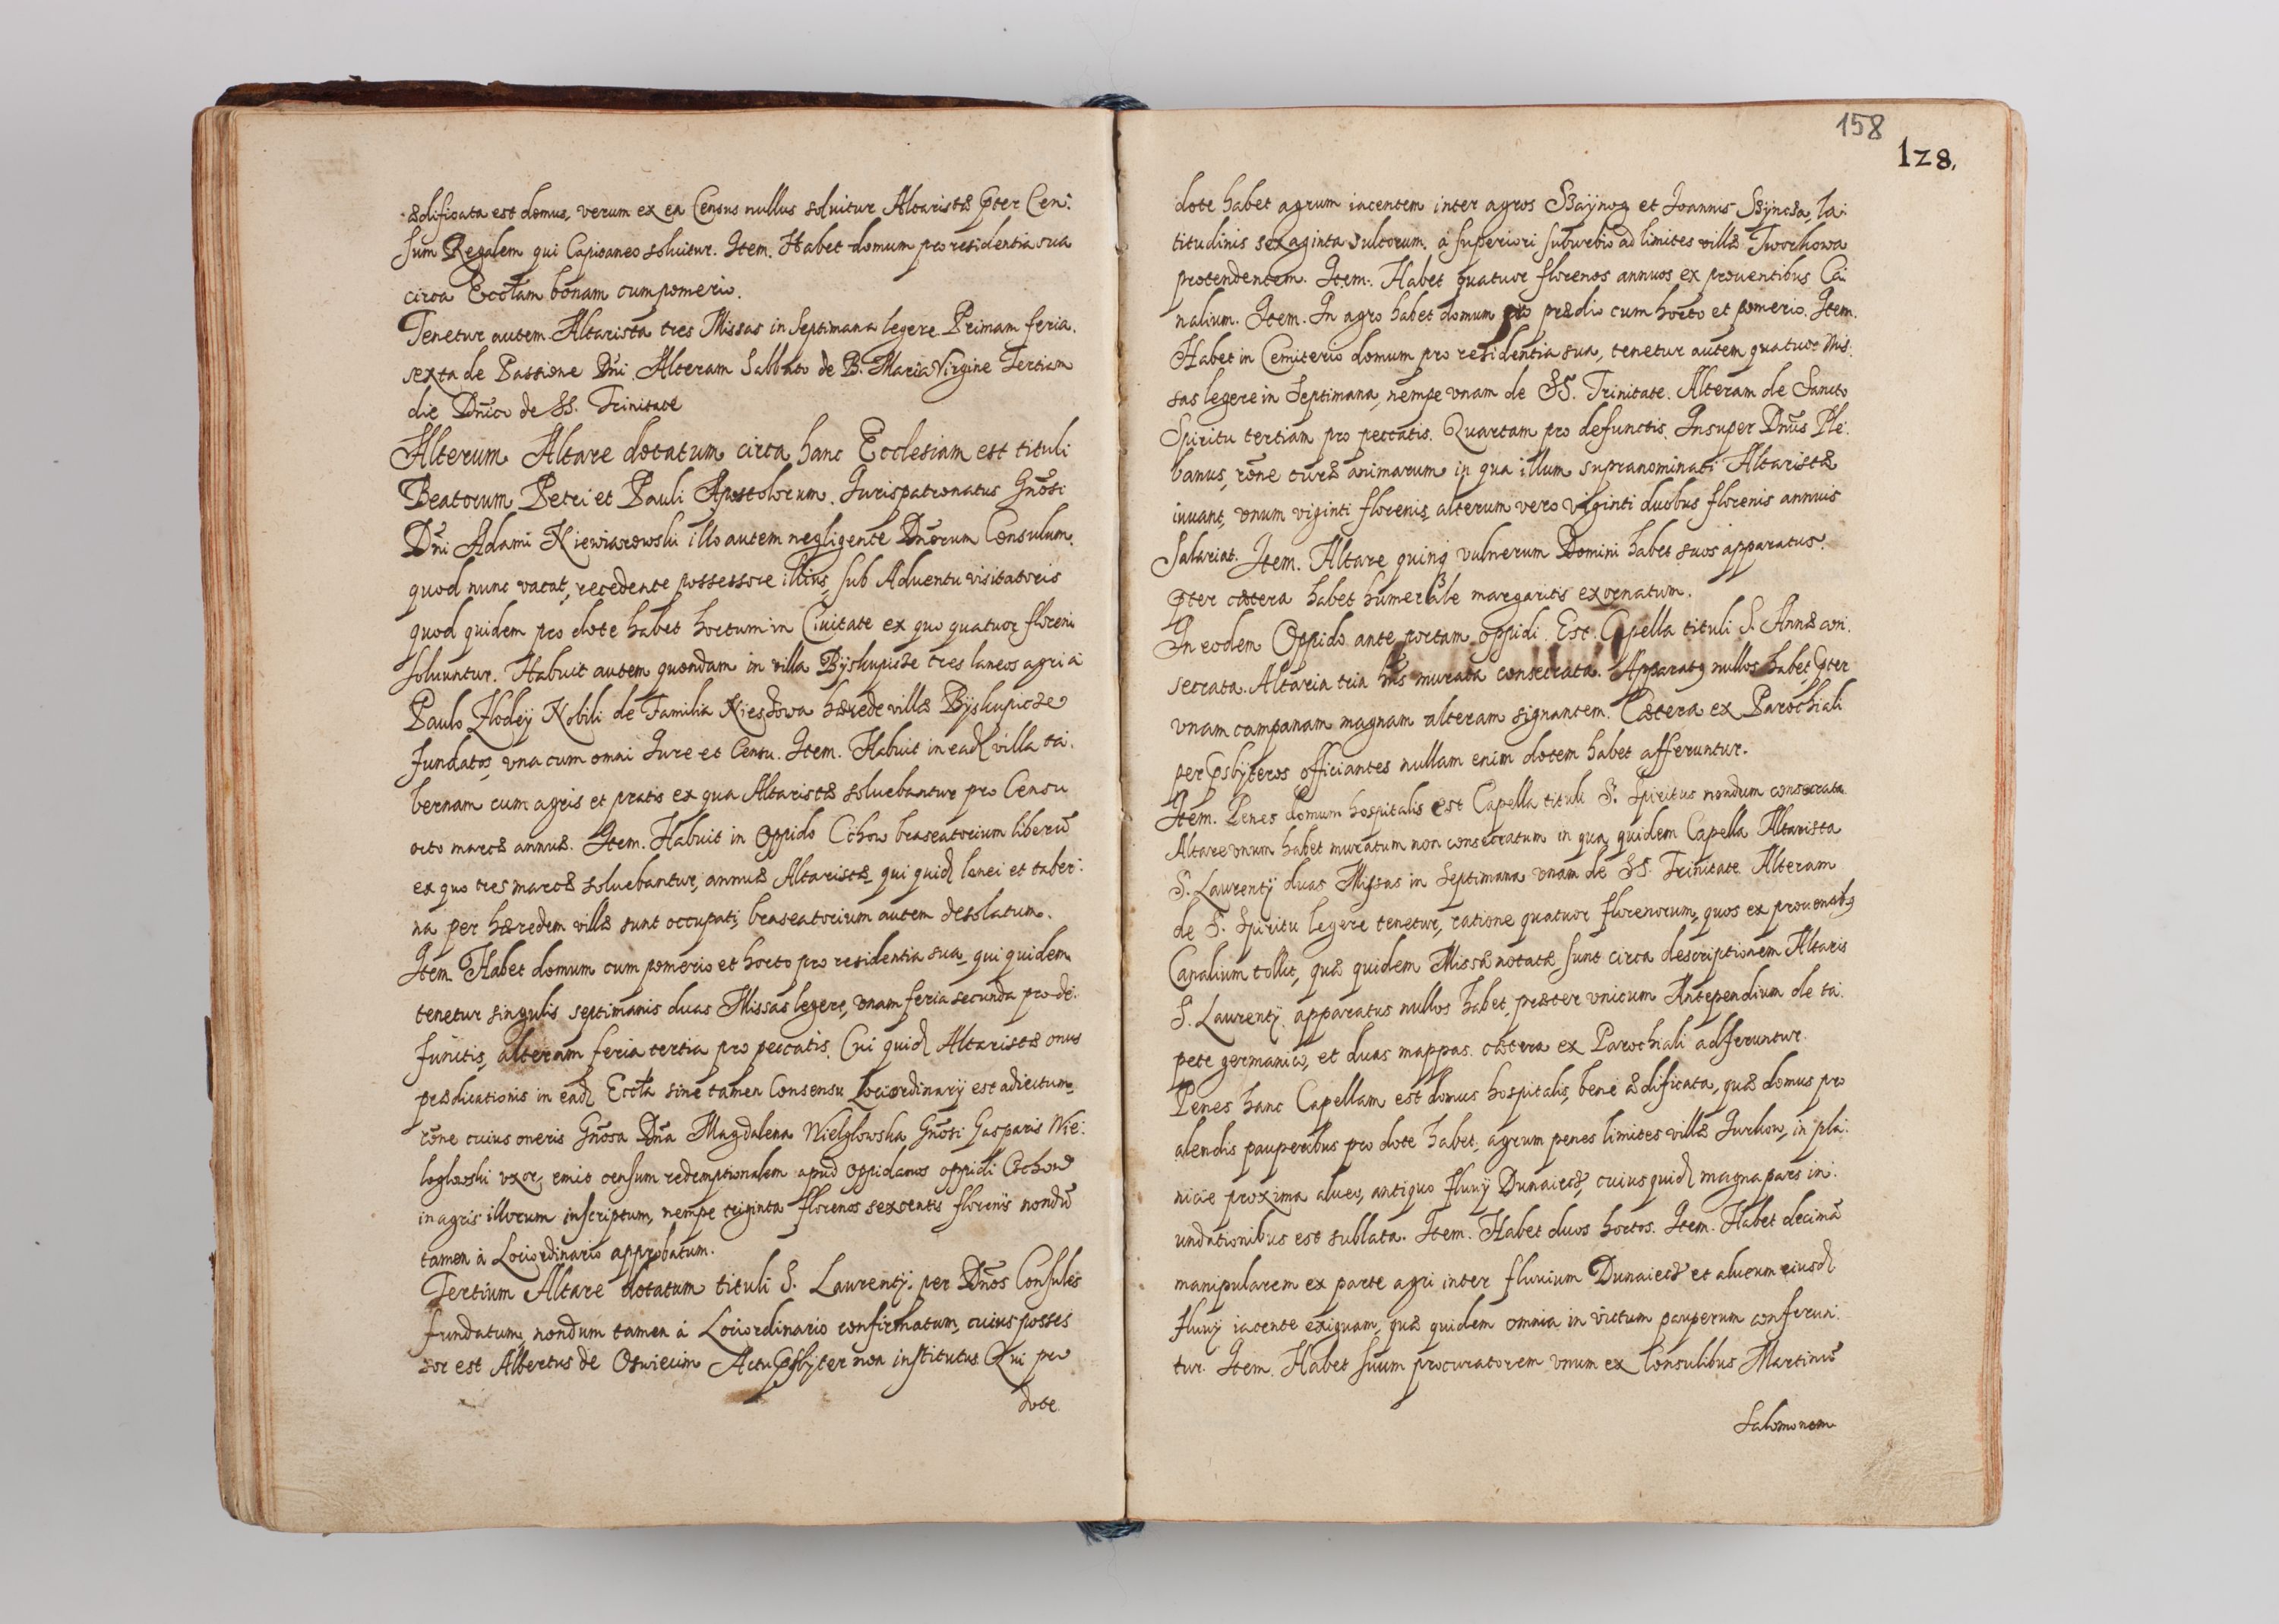 ædificata est domus, verum ex ea Census nullus soluitur Altaristæ pter Cen:
sum Regalem qui Capitaneo soluitur. Item. Habet domum pro residentia sua
circa Eccłam bonam cum pomerio.
Tenetur autem Altarista tres Missas in septimana legere Primam feria.
sexta de Passione Dni. Alteram Sabbato de B. Maria Virgine Tertiam
die Dnica de SS. Trinitate
Alterum Altare dotatum circa hanc Ecclesiam est tituli
Beatorum Petri et Pauli Apostolorum. Jurispatronatus Gnosi
Dni Adami Niewiarowski illo autem negligente Dnorum Consulum.
quod nunc vacat, recedente possessore illius, sub Aduentu visitatoris
quod quidem pro dote habet hortum in Ciuitate ex quo quatuor floreni
soluuntur. Habuit autem quondam in villa Byskupicze tres laneos agri a
Paulo Zlodey Nobili de Familia Niesdowa hærede villæ Byskupicze
fundatos, vna cum omni Jure et Censu. Item. Habuit in ead villa ta:
bernam cum agris et pratis ex qua Altaristæ soluebantur pro Censu
octo marcæ annuæ. Item. Habuit in Oppido Cchow braseatorium liberū
ex quo tres marcæ soluebantur annuæ Altaristæ, qui quid lanei et taber:
na per hæredem villæ sunt occupati, braseatorium autem desolatum.
Item Habet domum cum pomerio et horto pro residentia sua, qui quidem
tenetur singulis septimanis duas Missas legere, vnam feria secunda pro de:
functis, alteram feria tertia pro peccatis. Cui quid Altaristæ onus
prædicationis in ead Eccła sine tamen Consensu Lociordinarij est adiectum,
rōne cuius oneris Gnosa Dna Magdalena Wielglowska Gnosi Gasparis Wie:
loglowski vxor, emit censum redemptionalem apud oppidanos oppidi Cchow
in agris illorum inscriptum, nempe triginta florenos sexcentis florenis nondū
tamen à Lociordinario approbatum.
Tertium Altare dotatum tituli S. Laurentij. per Dnos Consules
fundatum, nondum tamen à Lociordinario confirmatum, cuius posses
sor est Albertus de Oswiecim Actu psbyter non institutus. Qui pro
dote
158
128.
dote habet agrum iacentem inter agros et Joannis la:
titudinis sexaginta sulcorum. à superiori suburbio ad limites villæ Tworkowa
protendentem. Item. Habet quatuor florenos annuos ex prouentibus Ca:
nalium. Item. In agro habet domum pro prædio cum horto et pomerio. Item.
Habet in Cemiterio domum pro residentia sua, tenetur autem quatuor Mis:
sas legere in septimana, nempe vnam de SS. Trinitate. Alteram de Sancto
Spiritu tertiam pro peccatis. Quartam pro defunctis. Insuper Dnus Ple:
banus, rōne curæ animarum in qua illum supranominati Altaristæ
iuuant, vnum viginti florenis, alterum vero viginti duobus florenis annuis
salariat. Item. Altare quinq vulnerum Domini habet suos apparatus.
pter cætera habet humerale margaritis exornatum.
In eodem Oppido ante portam oppidi. Est Capella tituli S. Annæ con:
secrata. Altaria tria murata consecrata. Apparatq nullos habet, pter
vnam campanam magnam alteram signantem. Cætera ex Parochiali
per psbyteros officiantes nullam enim dotem habet afferuntur.
Item. Penes domum hospitalis est Capella tituli S. Spiritus nondum consecrata
Altare vnum habet muratum non consecratum in qua quidem Capella Altarista
S. Laurentij duas Missas in Septimana vnam de SS. Trinitate Alteram
de S. Spiritu legere tenetur, ratione quatuor florenorum, quos ex prouentibq
Canalium tollit, quæ quidem Missæ notatæ sunt circa descriptionem Altaris
S. Laurentij. apparatus nullos habet, præter vnicum Antependium de ta:
pete germanico, et duas mappas. cætera ex Parochiali adferuntur.
Penes hanc Capellam est domus hospitalis, bene ædificata, quæ domus pro
alendis pauperibus pro dote habet, agrum penes limites villæ Jurkow, in pla:
nicie proxima alueo, antiquo fluuij Dunaiecz, cuius quid magna pars in:
undationibus est sublata. Item. Habet duos hortos. Item. Habet decimā
manipularem ex parte agri inter fluuium Dunaiecz et alueum eiusd
fluuij iacente exiguam, quæ quidem omnia in victum pauperum conferun:
tur. Item. Habet suum procuratorem vnum ex Consulibus Martinū
Salomonem